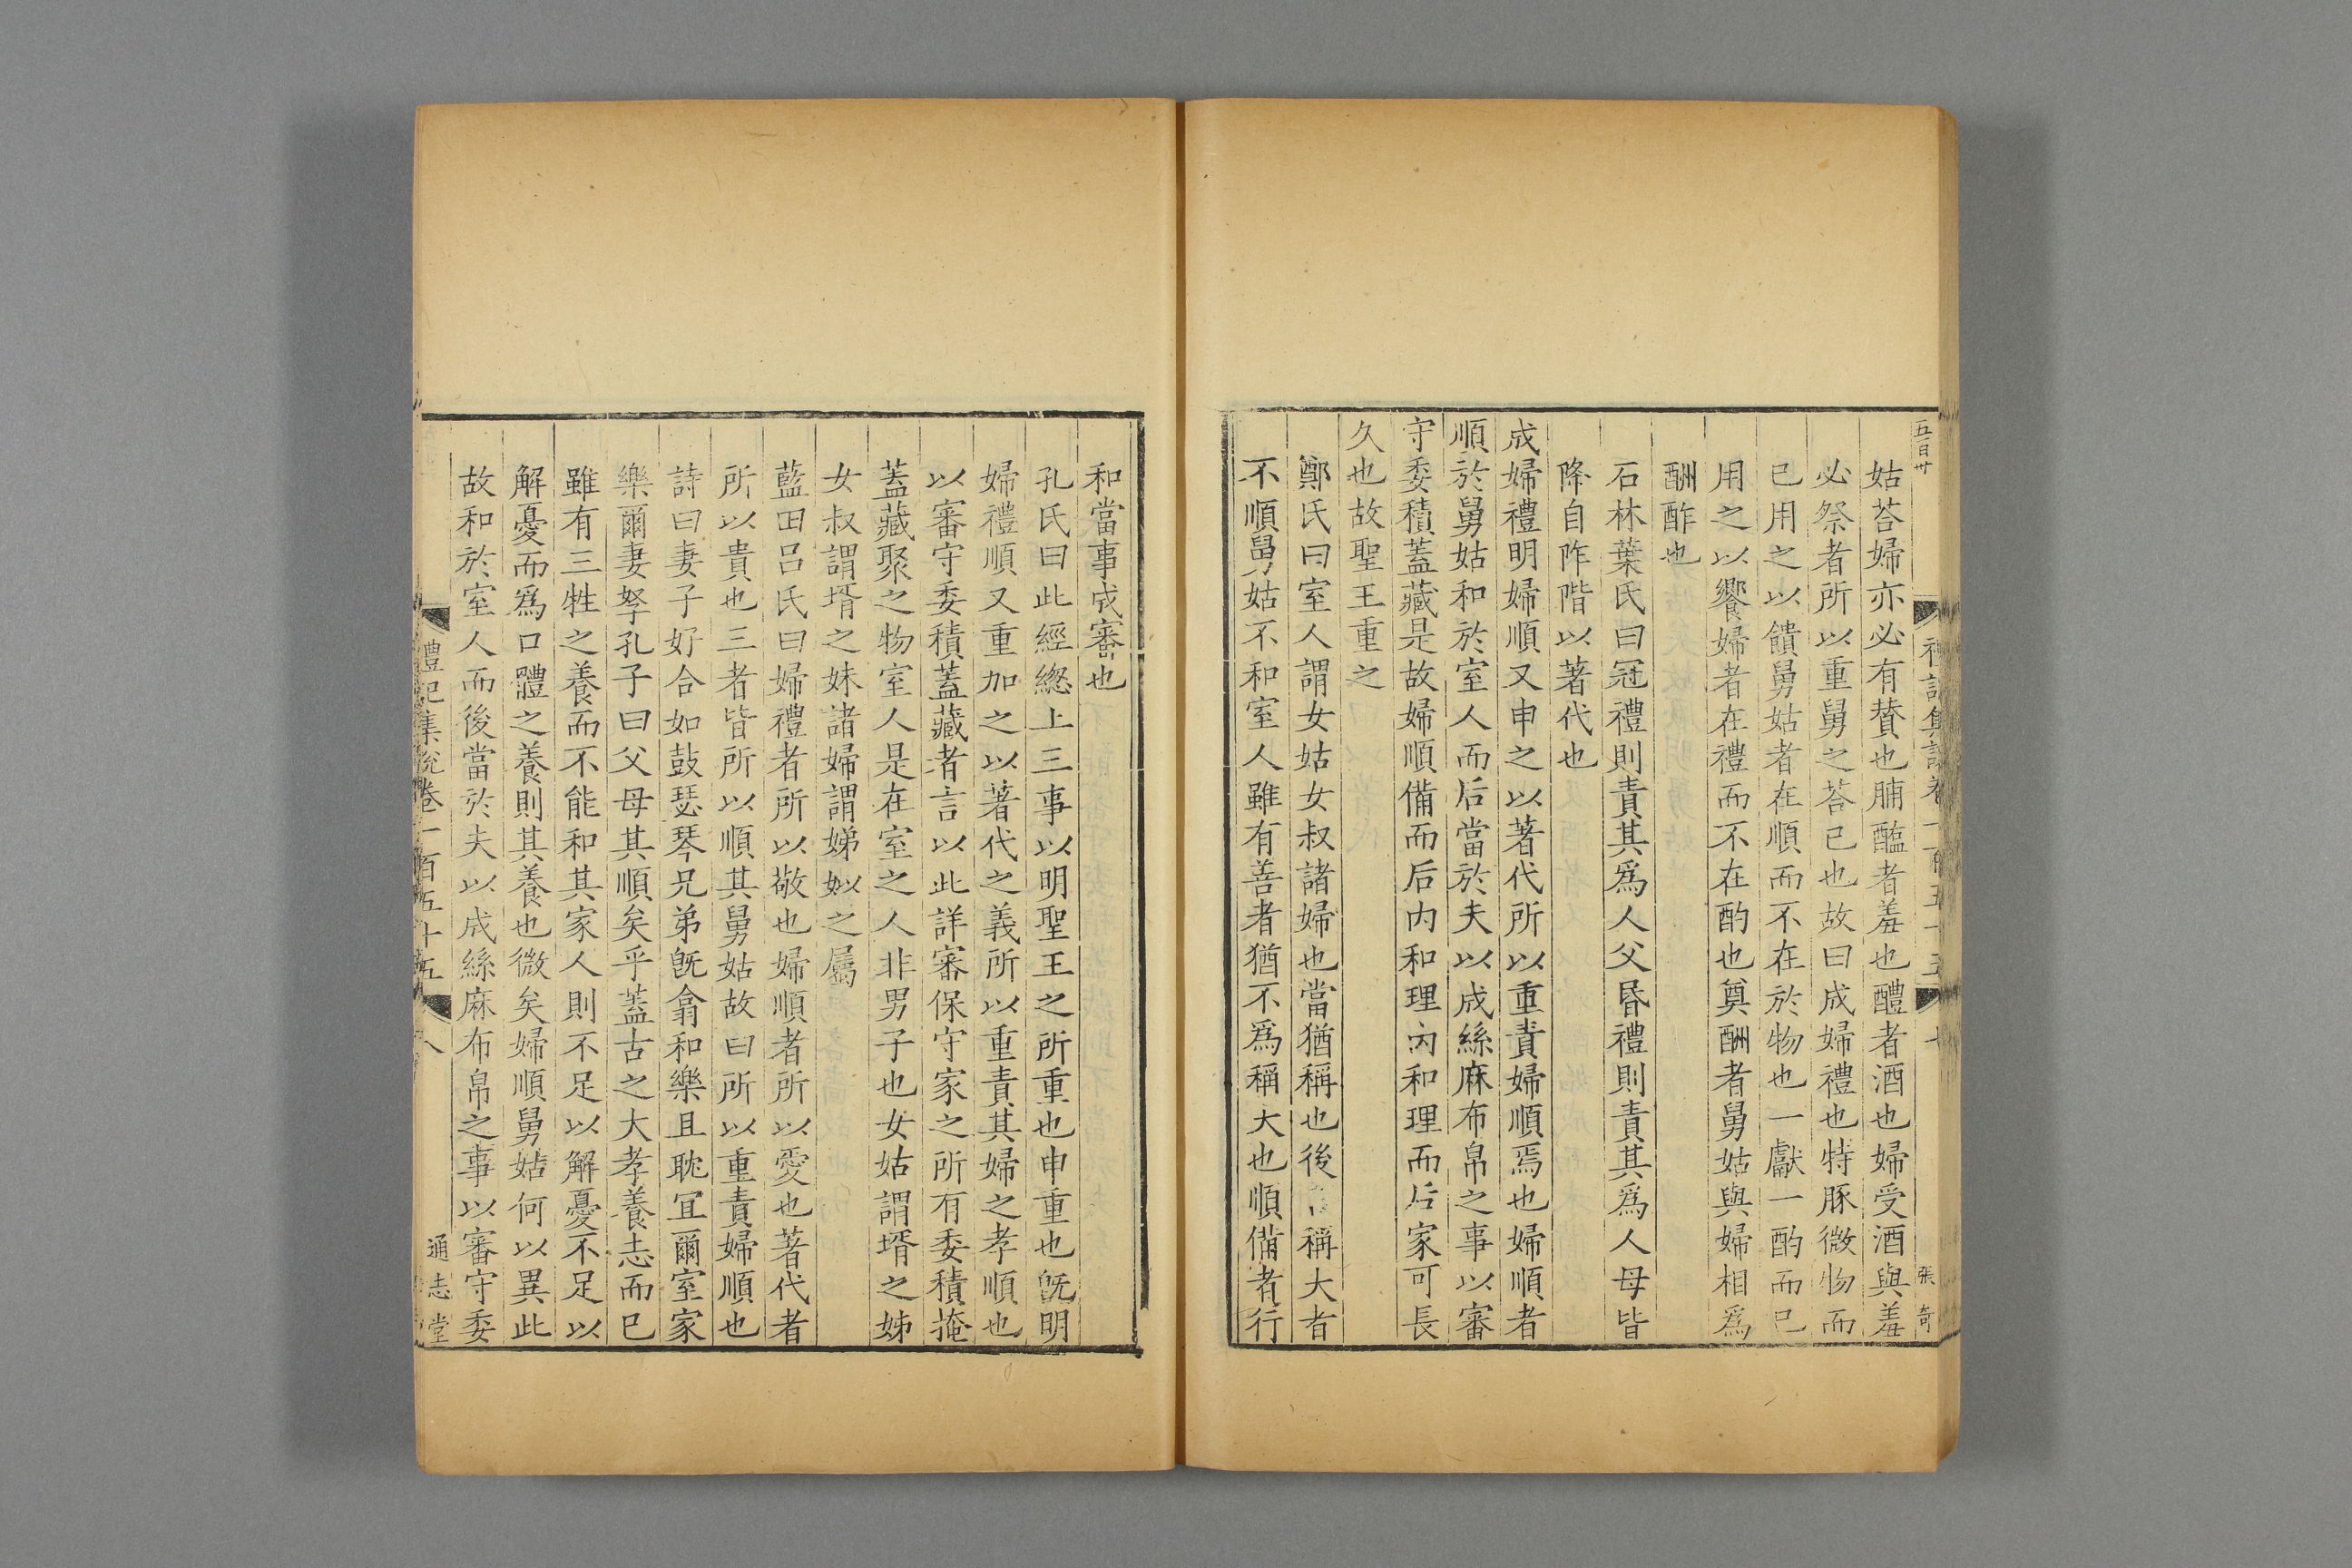 五百廿
禮記集說卷一百五十五
七
張奇
姑荅婦亦必有贊也脯醢者羞也醴者酒也婦受酒與羞
必祭者所以重舅之荅已也故曰成婦禮也特豚微物而
已用之以饋舅姑者在順而不在於物也一獻一酌而已
用之以饗婦者在禮而不在酌也奠酬者舅姑與婦相爲
酬酢也
石林葉氏曰冠禮則責其爲人父昏禮則責其爲人母皆
降自阼階以著代也
成婦禮明婦順又申之以著代所以重責婦順焉也婦順者
順於舅姑和於室人而后當於夫以成絲麻布帛之事以審
守委積蓋藏是故婦順備而后內和理內和理而后家可長
久也故聖王重之
鄭氏曰室人謂女姑女叔諸婦也當猶稱也後言稱大者
不順舅姑不和室人雖有善者猶不爲稱大也順備者行
和當事成審也
孔氏曰此經緫上三事以明聖王之所重也申重也旣明
婦禮順又重加之以著代之義所以重責其婦之孝順也
以審守委積蓋藏者言以此詳審保守家之所有委積掩
蓋藏聚之物室人是在室之人非男子也女姑謂壻之姊
女叔謂壻之妹諸婦謂娣姒之屬
藍田呂氏曰婦禮者所以敬也婦順者所以愛也著代者
所以貴也三者皆所以順其舅姑故曰所以重責婦順也
詩曰妻子好合如鼓瑟琴兄弟旣翕和樂且耽宜爾室家
樂爾妻孥孔子曰父母其順矣乎蓋古之大孝養志而已
雖有三牲之養而不能和其家人則不足以解憂不足以
解憂而爲口體之養則其養也微矣婦順舅姑何以異此
故和於室人而後當於夫以成絲麻布帛之事以審守委
禮記集說卷一百五十五
八
通志堂